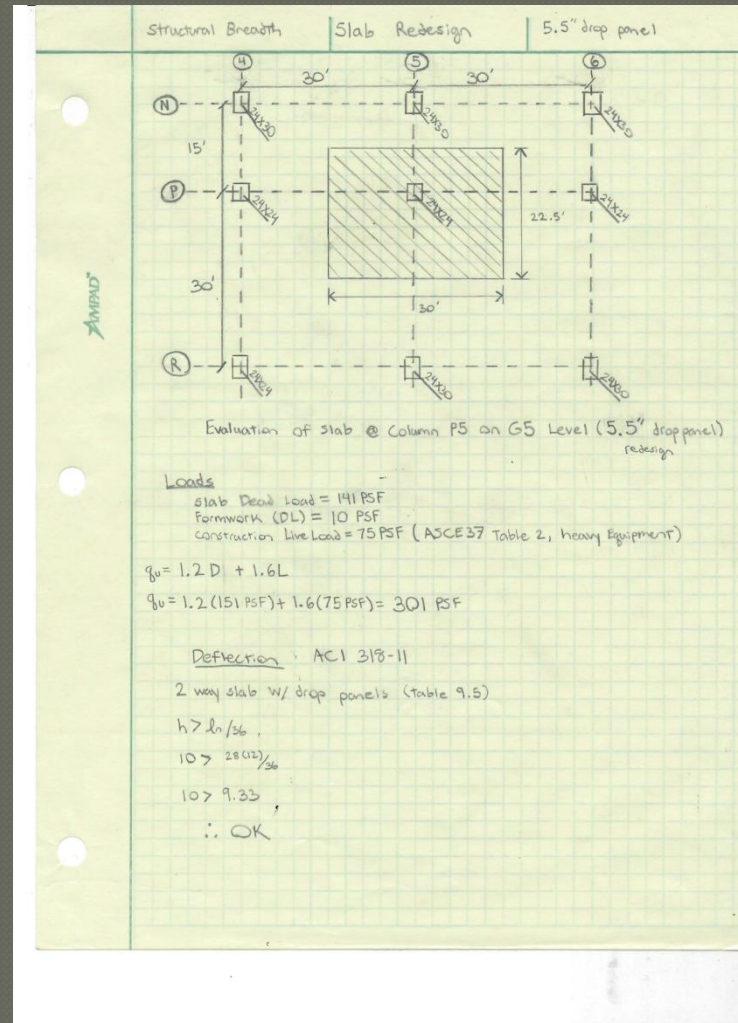 Structural Breadth
Slab Redesign
5.5" drop panel
4 5 6
30' 30'
N
24X30 24X30 24X30
15'
P
24X24 24X24 24X24
22.5'
30'
30'
R
24X24 24X30 24X30
AMPAD™
Evaluation of slab @ Column P5 on G5 Level (5.5" drop panel)
redesign
Loads
Slab Dead Load = 141 PSF
Formwork (DL) = 10 PSF
Construction Live Load = 75 PSF (ASCE37 Table 2, heavy Equipment)
qu = 1.2D + 1.6L
qu = 1.2(151 PSF) + 1.6(75 PSF) = 301 PSF
Deflection ACI 318-11
2 way slab w/ drop panels (table 9.5)
h > ln/36
10 > 28(12)/36
10 > 9.33
∴ OK